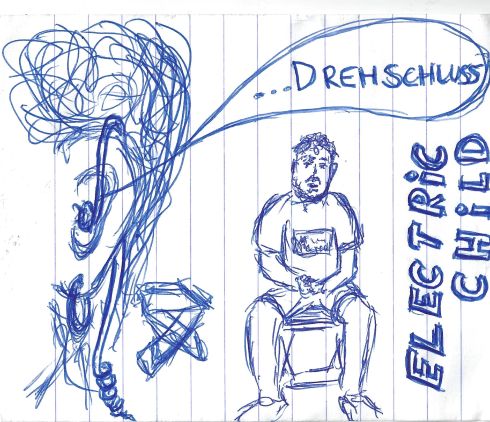 ...DREHSCHLUSS
ELECTRiC
CHiLD